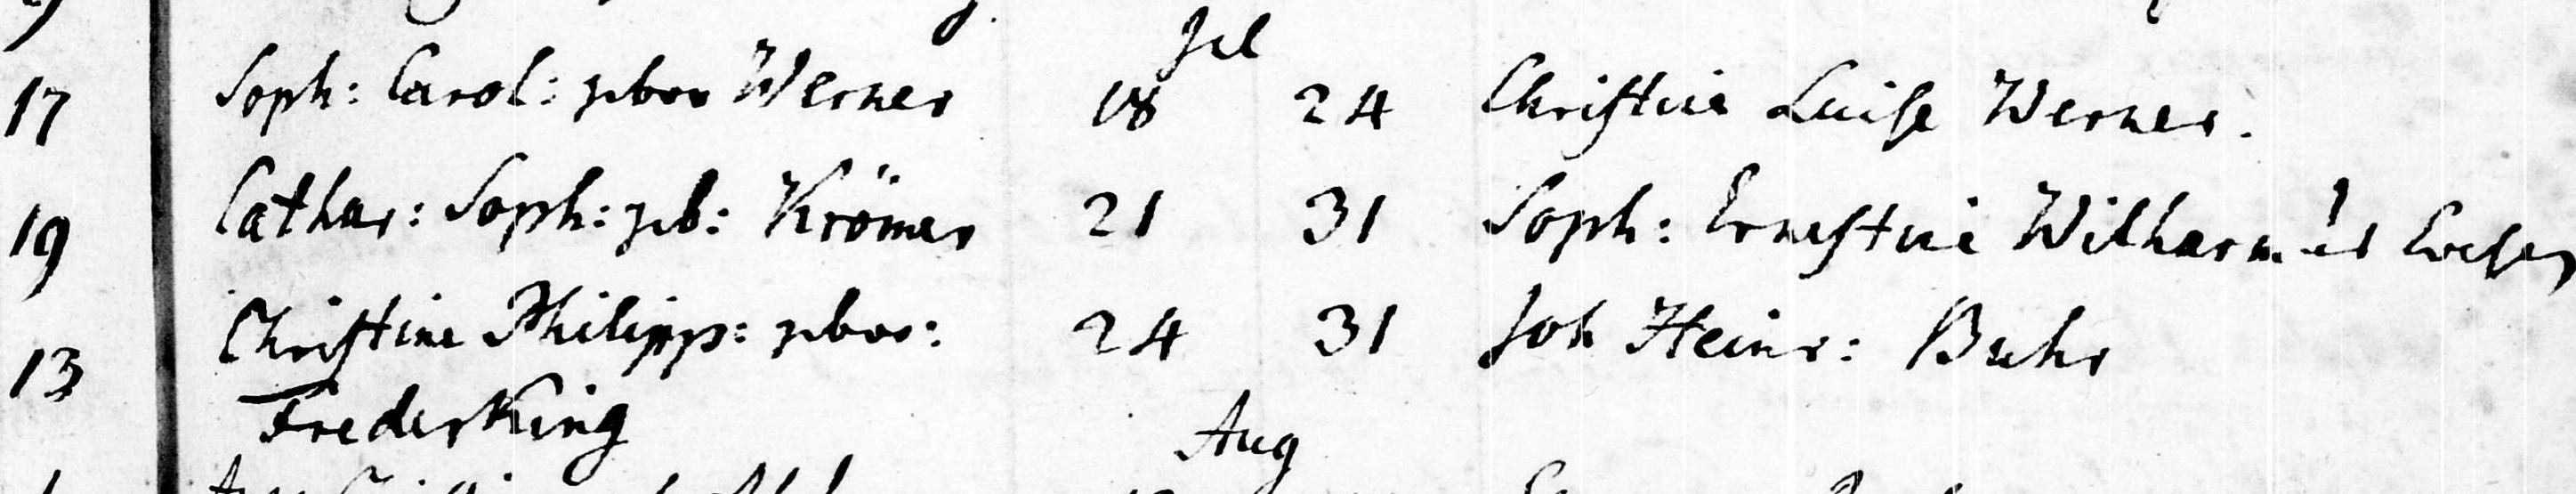 Jul
17 Soph: Carol: gebor Werner 18 24 Christine Luise Werner.
19 Cathar: Soph: geb: Krömer 21 31 Soph: Ernestine Witharm
13 Christine Philipp: gebor: 24 31 Joh Heinr: Buhr
Frederking
Aug